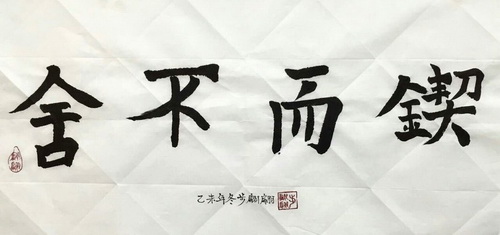 鍥而不舍
乙未年冬翩翩